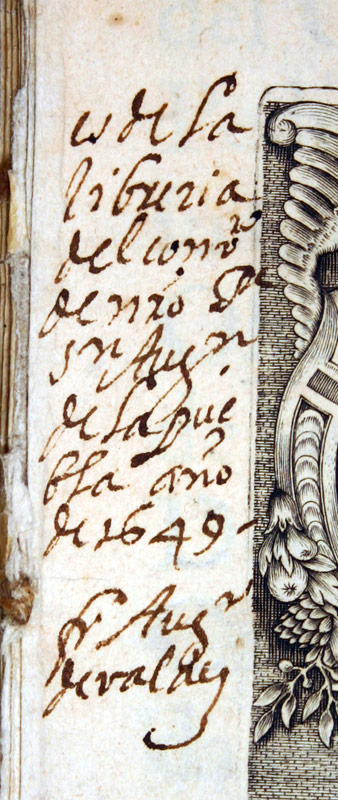 es de la
libreria
del conv.to
de nro P.e
Sn Augn
de la pue
bla año
de 1649 -
fr Augn
de valdes